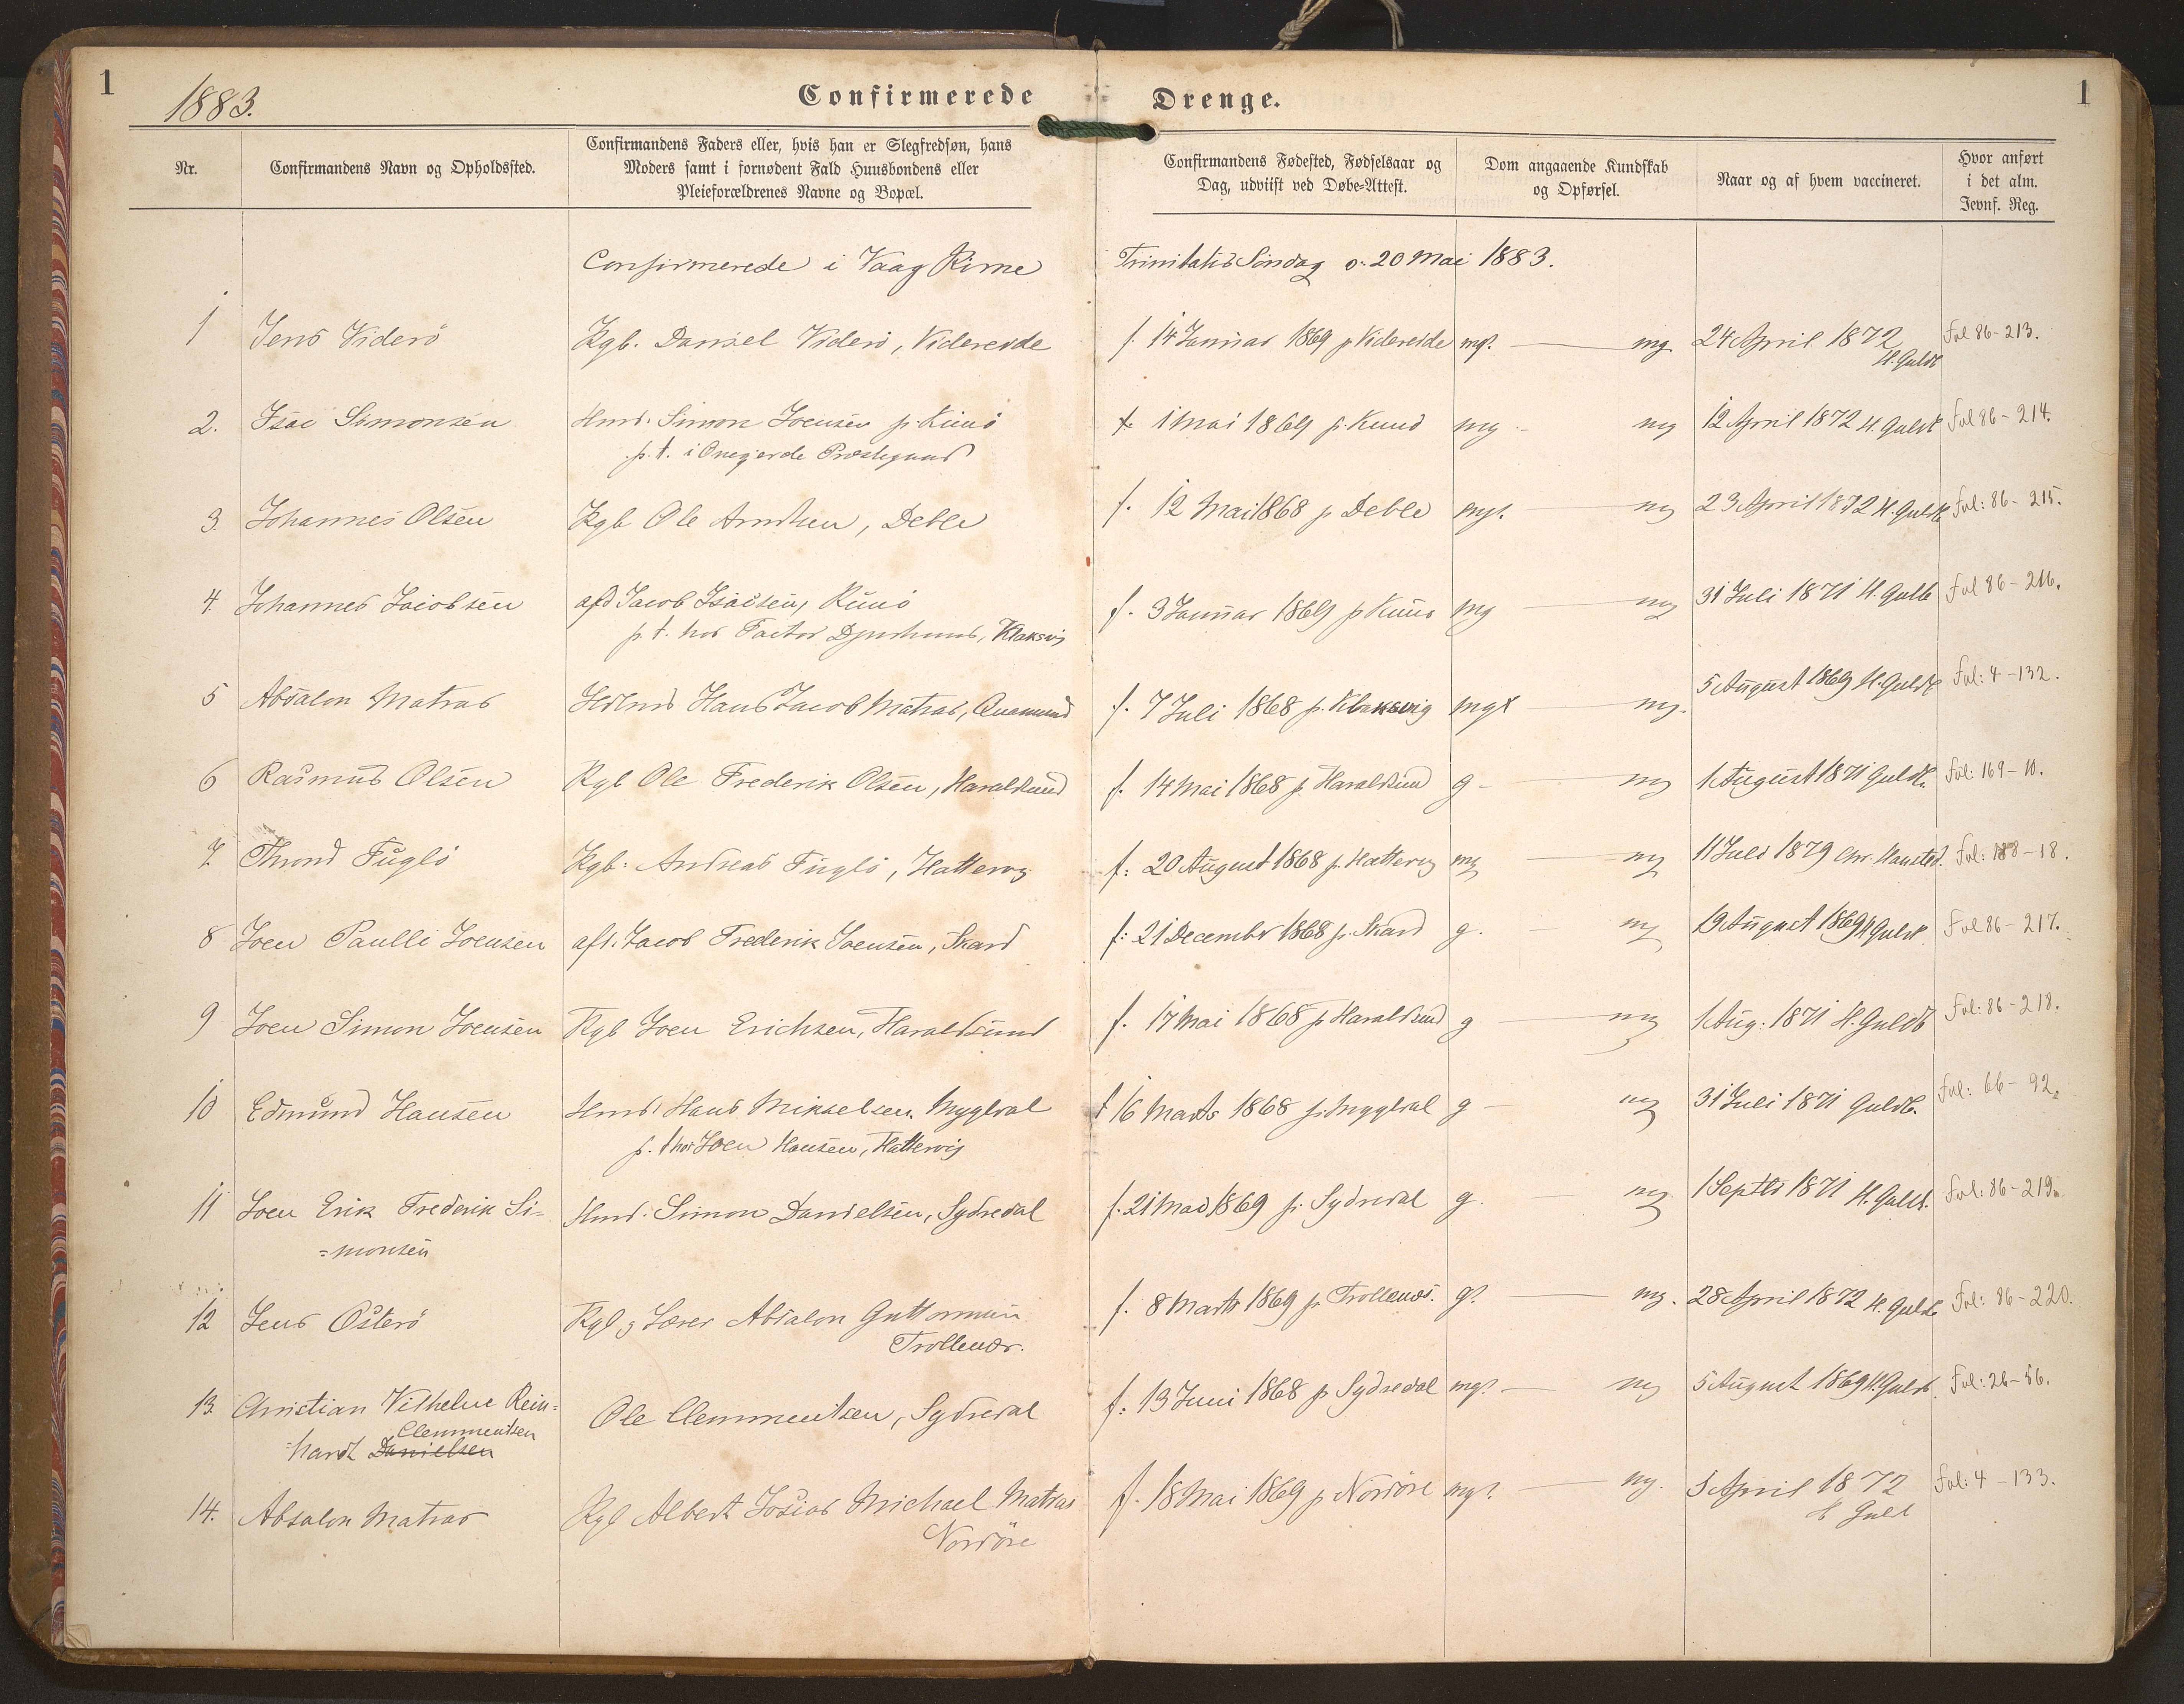 1
1883.
Confirmerede Drenge.
1
Nr.
Confirmandens Navn og Opholdssted.
Confirmandens Faders eller, hvis han er Slegfredsøn, hans
Moders samt i fornødent Fald Huusbondens eller
Pleieforældrenes Navne og Bopæl.
Confirmandens Fødested, Fødselsaar og
Dag, udviist ved Døbe-Attest.
Dom angaaende Kundskab
og Opførsel.
Naar og af hvem vaccineret.
Hvor anført
i det alm.
Jevnf. Reg.
Confirmerede i Vaag Kirke Trinitatis Söndag o: 20 Mai 1883.
1 Jens Viderö Kgb. Daniel Viderö, Videreide f. 14 Januar 1869 p Videreide mg? mg. 24 April 1872 Fol 86-213.
H. Guldb
2. Isac Simonsen Hmd. Simon Joensen p. Kunö f. 1 Mai 1869 p. Kunö mg - mg 12 April 1872 H. Guldb Fol 86-214.
p. t. i Præstegaard
3. Johannes Olsen Kgb Ole Arndtsen, Deble f. 12 Mai 1868 p Deble mg?. mg 23 April 1872 H. Guldb Fol: 86-215.
4. Johannes Jacobsen afd Jacob Isacsen, Kunö f. 3 Januar 1869 p Kunö mg mg 31 Juli 1871 H. Guldb Fol 86-216.
p. t. hos Factor Djurhuus, Klaksvig
5 Absalon Matras Hans Jacob Matras, Quannesund f. 7 Juli 1868 p. Klaksvig mg? mg. 5 August 1869 H. Guldb Fol: 4-132.
6 Rasmus Olsen Kgb Ole Frederik Olsen, Haraldsund f. 14 Mai 1868 p. Haraldsund g - mg 1 August 1871 Guldb. Fol: 169-10.
7. Thrond Fuglö Kgb: Andreas Fuglö, Hattervig f: 20 August 1868 p. Hattervig mg mg 11 Juli 1879 Chr. Hansted. Fol: 188-18.
8 Joen Paulli Joensen afd. Jacob Frederik Joensen, Skard f: 21 Decembr 1868 p. Skard g. mg 19 August 1869 H Guldb. Fol 86-217.
9 Joen Simon Joensen Kgb Joen Erichsen, Haraldsund f. 17 Mai 1868 p Haraldsund g mg 1 Aug: 1871 H. Guldb Fol: 86-218.
10 Edmund Hansen Hmd: Hans Mikkelsen, Mygledal f 16 Marts 1868 p. Myggledal g - mg 31 Juli 1871 Guldb. Fol: 66-92.
p. t hos Joen Hansen, Hattervig
11 Joen Erik Frederik Si= Hmd. Simon Danielsen, Sydredal f. 21 Mai 1869 p. Sydredal g. mg. 1 Septbr 1871 H. Guldb. Fol: 86-219.
=monsen
12 Jens Österö Kgb og Lærer Absalon Guttormsen f. 8 Marts 1869 p. Trollenæs. g? mg. 28 April 1872 H. Guldb Fol: 86-220.
Trollenæs.
13. Christian Vilhelm Rein= Ole Clemmentsen, Sydredal f: 13 Juni 1868 p Sydredal mg? - mg 5 August 1869 H. Guldb. Fol: 26-56.
Clemmentsen
=hardt Danielsen
14. Absalon Matras Kgb Albert Josias Michael Matras f. 18 Mai 1869 p Nordöre mg?. mg. 5 April 1872 Fol: 4-133.
Nordöre H Guld